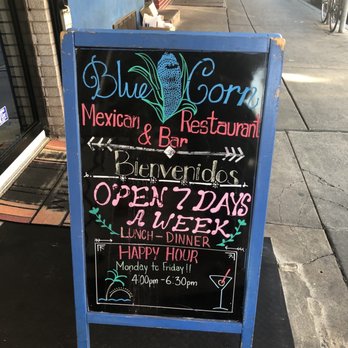 Blue Corn
Mexican Restaurant
& Bar
Bienvenidos
OPEN 7 DAYS
A WEEK
LUNCH - DINNER
HAPPY HOUR
Monday to Friday!!
4:00pm - 6:30pm